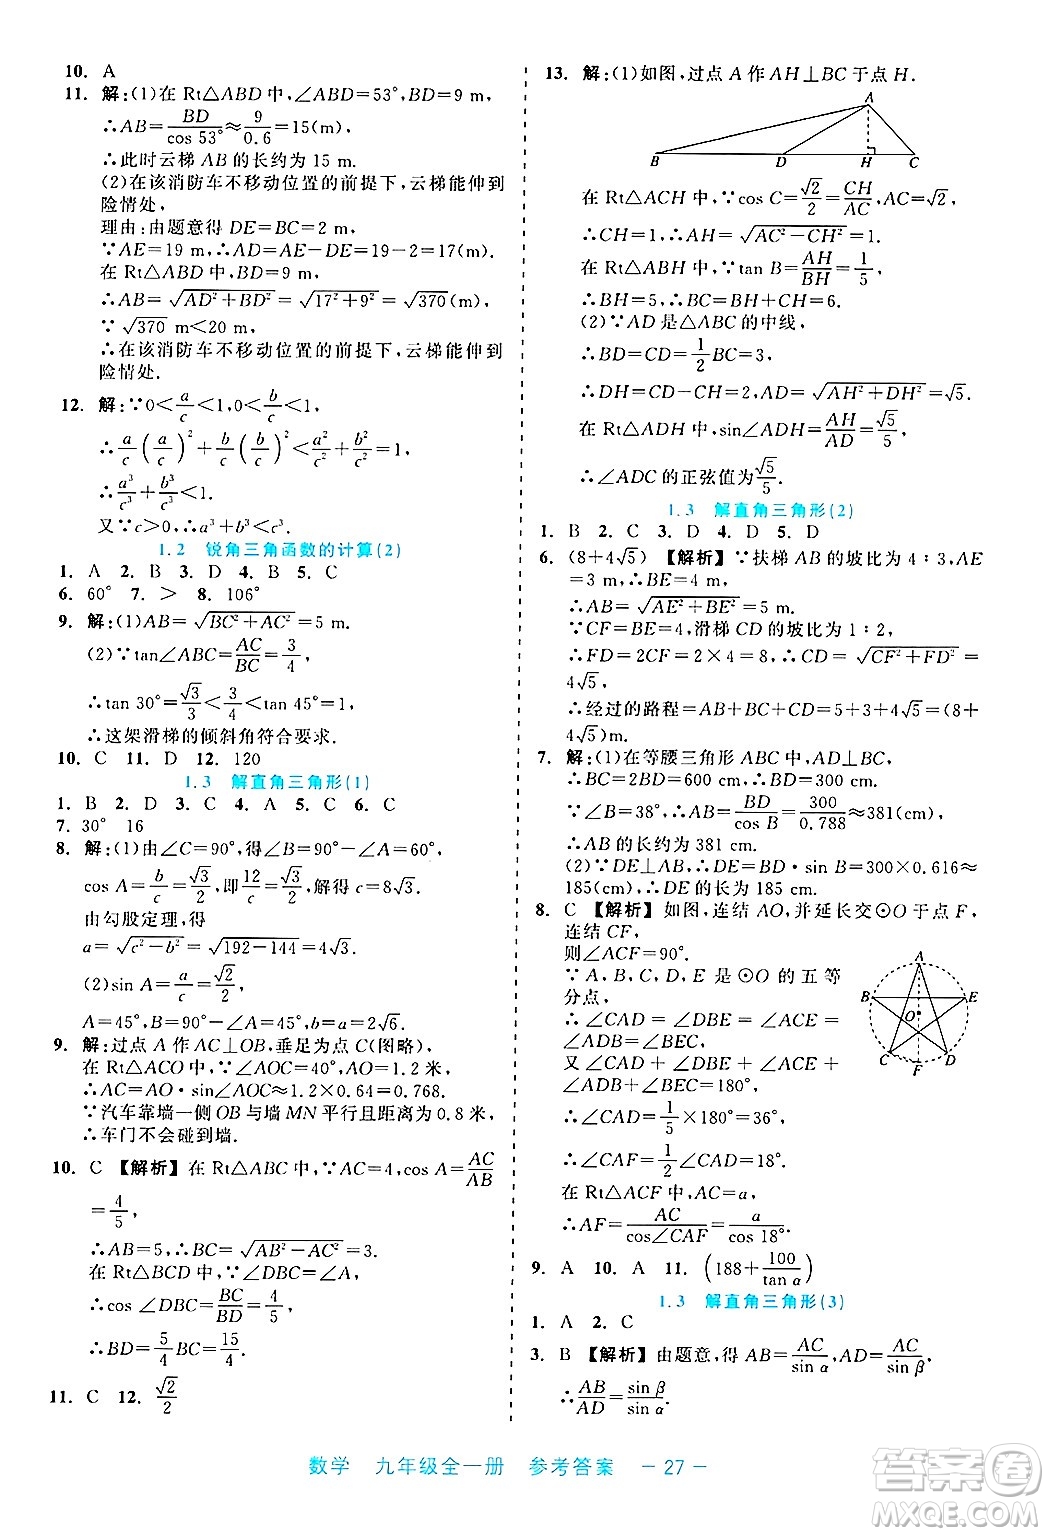 10. A
11. 解:(1)在 Rt△ABD 中,∠ABD=53°,BD=9 m,
∴AB=BD/cos 53°≈9/0.6=15(m),
∴此时云梯 AB 的长约为 15 m.
(2)在该消防车不移动位置的前提下,云梯能伸到
险情处.
理由:由题意得 DE=BC=2 m,
∵AE=19 m,∴AD=AE-DE=19-2=17(m),
在 Rt△ABD 中,BD=9 m,
∴AB=√(AD²+BD²)=√(17²+9²)=√370(m),
∵√370 m<20 m,
∴在该消防车不移动位置的前提下,云梯能伸到
险情处.
12. 解:∵0<a/c<1,0<b/c<1,
∴a/c(a/c)²+b/c(b/c)²<a²/c²+b²/c²=1,
∴a³/c³+b³/c³<1.
又∵c>0,∴a³+b³<c³.
1.2 锐角三角函数的计算(2)
1. A 2. B 3. D 4. B 5. C
6. 60° 7. > 8. 106°
9. 解:(1)AB=√(BC²+AC²)=5 m.
(2)∵tan∠ABC=AC/BC=3/4,
∴tan 30°=√3/3<3/4<tan 45°=1,
∴这架滑梯的倾斜角符合要求.
10. C 11. D 12. 120
1.3 解直角三角形(1)
1. B 2. D 3. C 4. A 5. C 6. C
7. 30° 16
8. 解:(1)由∠C=90°,得∠B=30°,∠A=60°,
cos A=b/c=√3/2,即12/c=√3/2,解得 c=8√3.
由勾股定理,得
a=√(c²-b²)=√(192-144)=4√3.
(2)sin A=a/c=√2/2,
A=45°,B=90°-∠A=45°,b=a=2√6.
9. 解:过点 A 作 AC⊥OB,垂足为点 C(图略),
在 Rt△ACO 中,∵∠AOC=40°,AO=1.2 米,
∴AC=AO·sin∠AOC≈1.2×0.64=0.768.
∵汽车靠墙一侧 OB 与墙 MN 平行且距离为 0.8 米,
∴车门不会碰到墙.
10. C 【解析】在 Rt△ABC 中,∵AC=4,cos A=AC/AB
=4/5,
∴AB=5,∴BC=√(AB²-AC²)=3.
在 Rt△BCD 中,∵∠DBC=∠A,
∴cos ∠DBC=BC/BD=4/5,
∴BD=5/4 BC=15/4.
11. C 12. √2/2
13. 解:(1)如图,过点 A 作 AH⊥BC 于点 H.
A
B D H C
在 Rt△ACH 中,∵cos C=√2/2=CH/AC,AC=√2,
∴CH=1,∴AH=√(AC²-CH²)=1.
在 Rt△ABH 中,∵tan B=AH/BH=1/5,
∴BH=5,∴BC=BH+CH=6.
(2)∵AD 是△ABC 的中线,
∴BD=CD=1/2 BC=3,
∴DH=CD-CH=2,∴AD=√(AH²+DH²)=√5.
在 Rt△ADH 中,sin∠ADH=AH/AD=√5/5,
∴∠ADC 的正弦值为√5/5.
1.3 解直角三角形(2)
1. B 2. C 3. D 4. D 5. D
6. (8+4√5) 【解析】∵扶梯 AB 的坡比为 4∶3,AE
=3 m,∴BE=4 m,
∴AB=√(AE²+BE²)=5 m.
∵CF=BE=4,滑梯 CD 的坡比为 1∶2,
∴FD=2CF=2×4=8,∴CD=√(CF²+FD²)=
4√5,
∴经过的路程=AB+BC+CD=5+3+4√5=(8+
4√5)m.
7. 解:(1)在等腰三角形 ABC 中,AD⊥BC,
∴BC=2BD=600 cm,∴BD=300 cm.
∵∠B=38°,∴AB=BD/cos B=300/0.788≈381(cm),
∴AB 的长约为 381 cm.
(2)∵DE⊥AB,∴DE=BD·sin B=300×0.616≈
185(cm),∴DE 的长约为 185 cm.
8. C 【解析】如图,连结 AO,并延长交⊙O 于点 F,
连结 CF,
则∠ACF=90°.
∵A,B,C,D,E 是⊙O 的五等
分点,
∴∠CAD=∠DBE=∠ACE=
∠ADB=∠BEC.
又∠CAD+∠DBE+∠ACE+
∠ADB+∠BEC=180°,
∴∠CAD=1/5×180°=36°,
∴∠CAF=1/2∠CAD=18°.
在 Rt△ACF 中,AC=a,
∴AF=AC/cos∠CAF=a/cos 18°.
A
B E
O
C F D
9. A 10. A 11. (188+100/tan α)
1.3 解直角三角形(3)
1. A 2. C
3. B 【解析】由题意,得 AB=AC/sin α,AD=AC/sin β,
∴AB/AD=sin β/sin α.
数学 九年级全一册 参考答案 －27－
答案圈
MXQE.COM